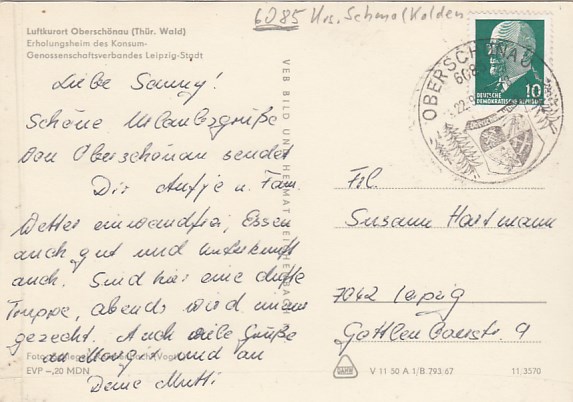 6085 Krs. Schmalkalden
Luftkurort Oberschönau (Thür. Wald)
Erholungsheim des Konsum-
Genossenschaftsverbandes Leipzig-Stadt
Liebe Sanny!
Schöne Urlaubsgrüße
von Oberschönau sendet
Dir Antje u. Fam.
Wetter einwandfrei, Essen
auch gut und Unterkunft
auch. Sind hier eine dufte
Truppe, abends wird immer
gezecht. Auch viele Grüße
an und an
Deine Mutti
EVP -,20 MDN
VEB BILD UND HEIMAT REICHENBACH
OBERSCHÖNAU
608
22.9
10
DEUTSCHE
DEMOKRATISCHE REPUBLIK
Frl.
Susann Hartmann
7042 Leipzig
9
V 11 50 A 1/B 793.67
11/3570